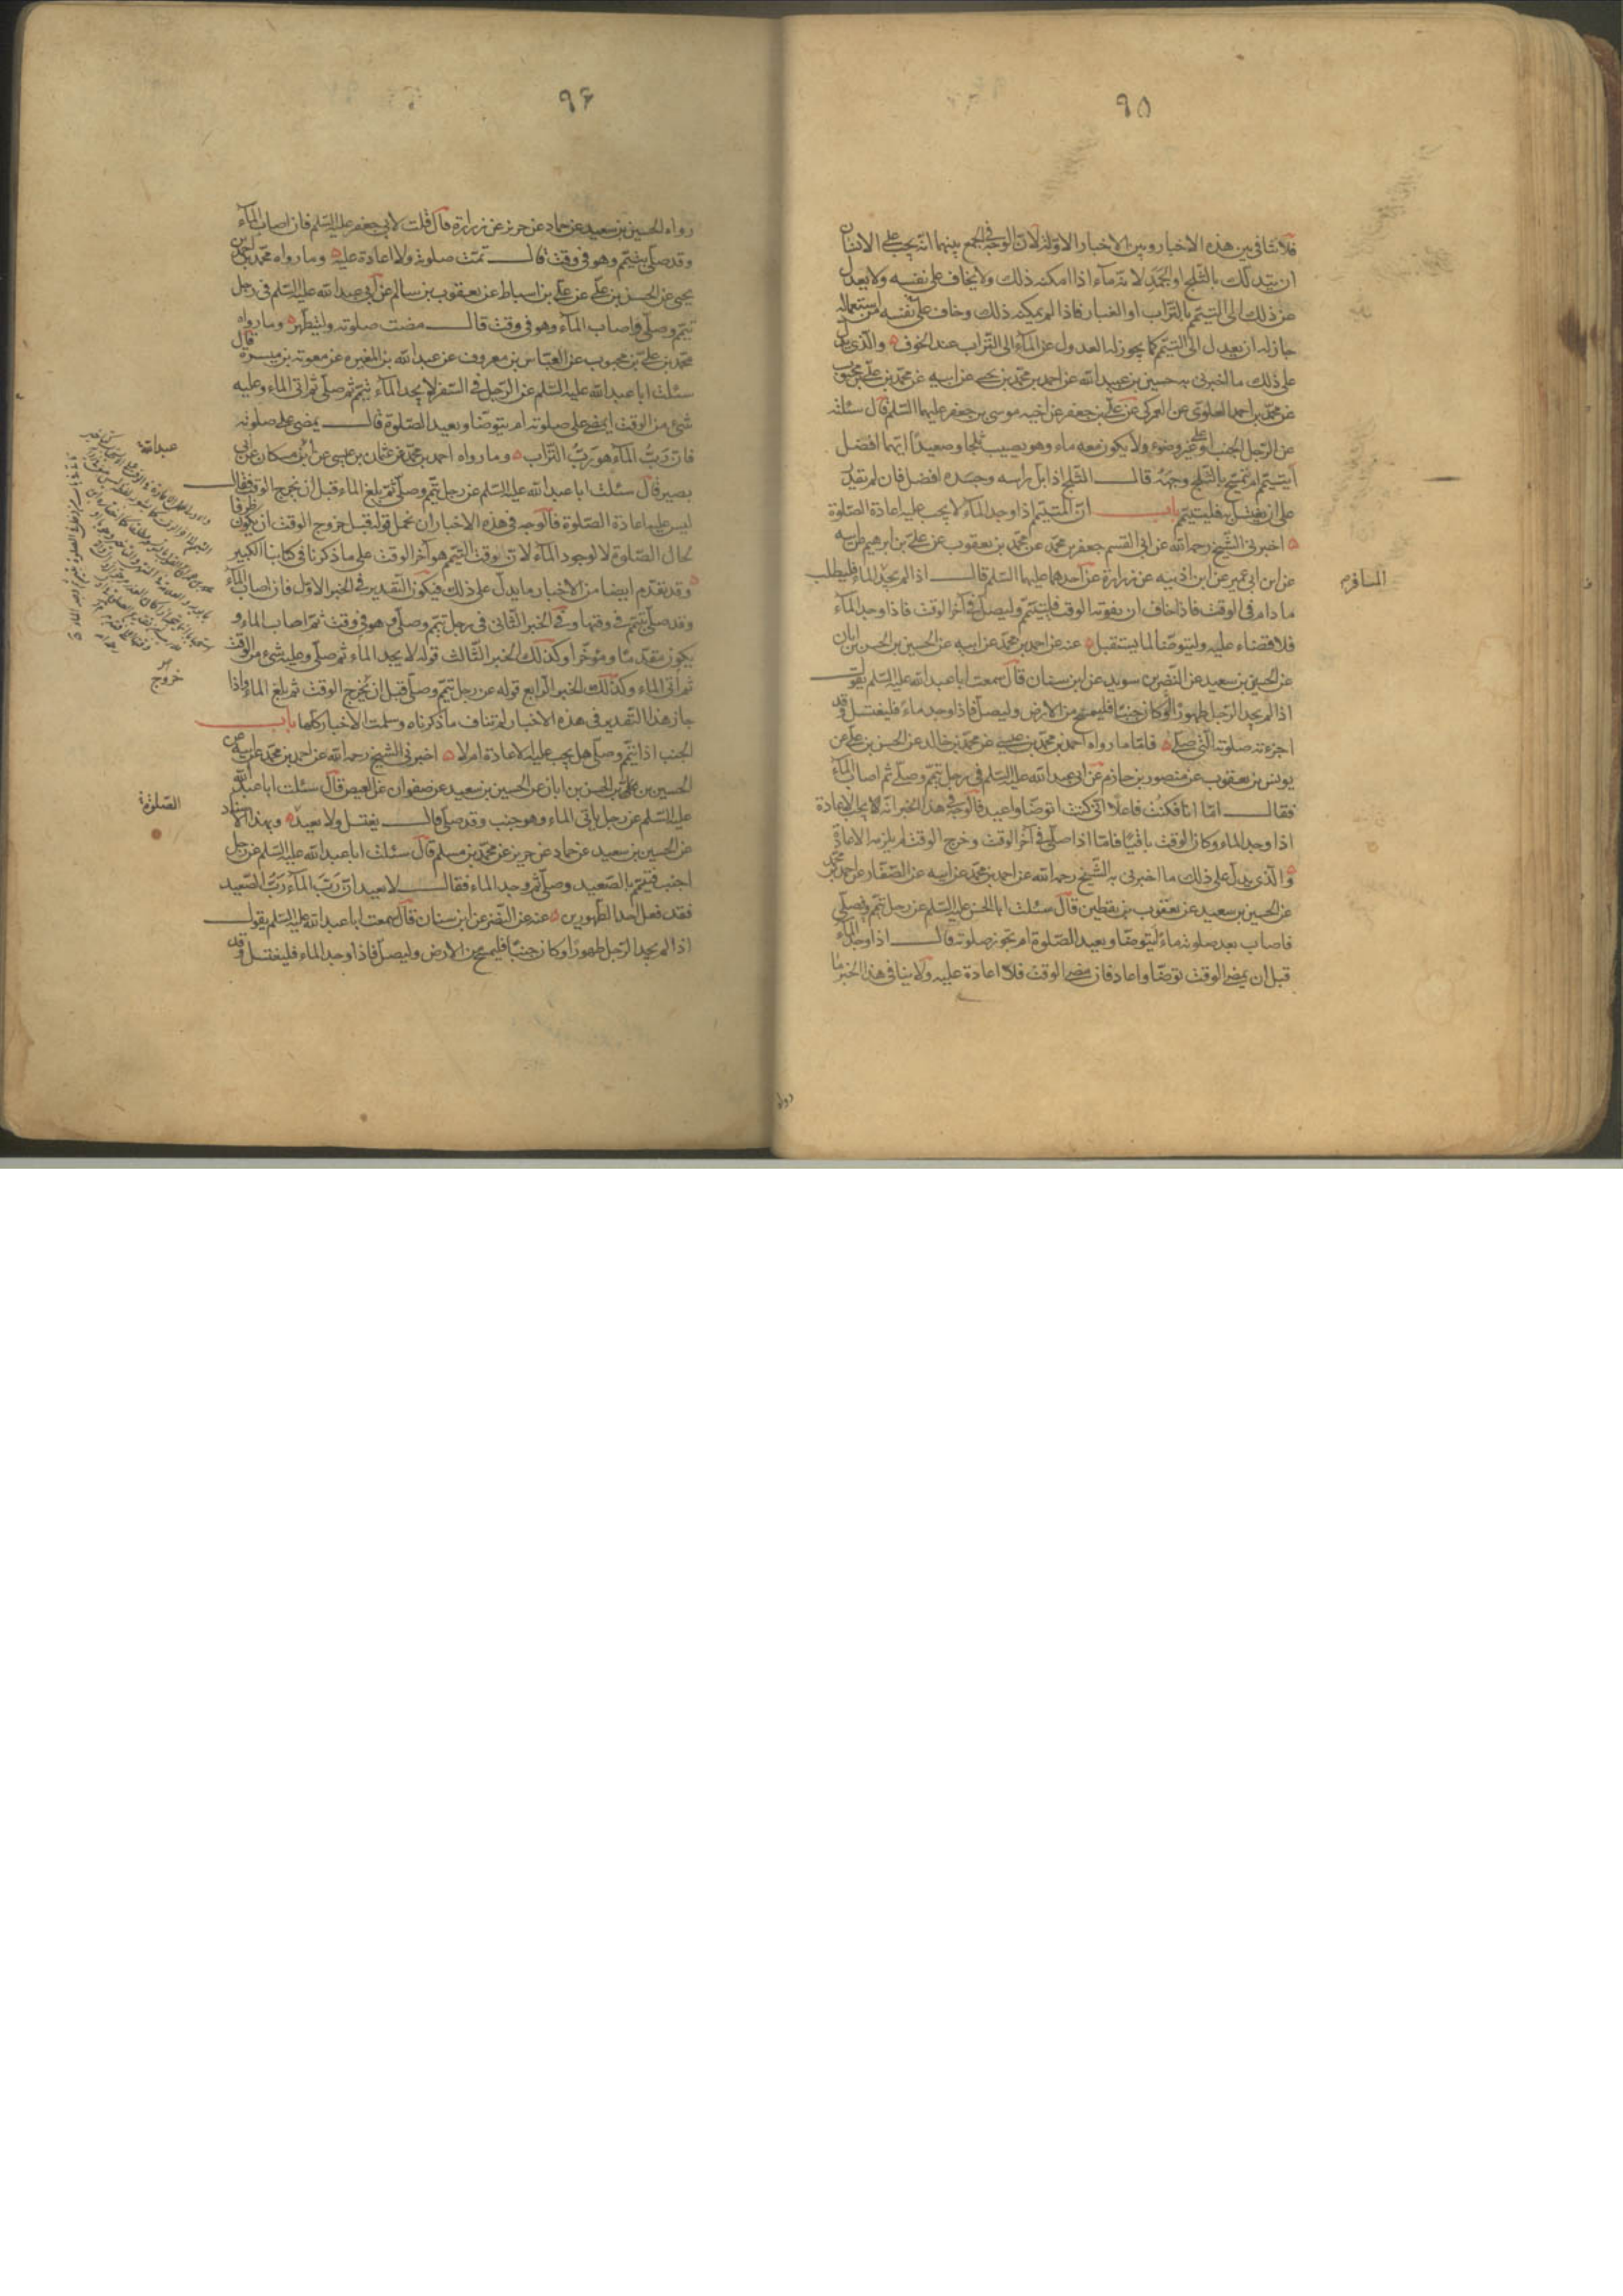 ٩٥
فلا تنافي بين هذه الاخبار وبين الاخبار الاولة لان الوجه في الجمع بينهما انه يجب على الانسان
ان يتدلك بالثلج او الجمد لانه ماء اذا امكنه ذلك ولا يخاف على نفسه ولا يعدل
عن ذلك الى التيمم بالتراب او الغبار فاذا لم يمكنه ذلك وخاف على نفسه من استعماله
جاز له ان يعدل الى التيمم كما يجوز له العدول عن الماء الى التراب عند الخوف والذي يدل
على ذلك ما اخبرني به حسين بن عبيد الله عن احمد بن محمد بن يحيى عن ابيه عن محمد بن علي بن محبوب
عن محمد بن احمد العلوي عن العمركي عن علي بن جعفر عن اخيه موسى بن جعفر عليهما السلم قال سئلته
عن الرجل الجنب او على غير وضوء ولا يكون معه ماء وهو يصيب ثلجا وصعيدا ايهما افضل
أيتيمم ام يتمسح بالثلج وجهه قال الثلج اذا بل راسه وجسده افضل فان لم يقدر
على ان يغتسل به فليتيمم باب ان المتيمم اذا وجد الماء لا يجب عليه اعادة الصلوة
اخبرني الشيخ رحمه الله عن ابي القسم جعفر بن محمد عن محمد بن يعقوب عن علي بن ابرهيم عن ابيه
عن ابن ابي عمير عن ابن اذينه عن زرارة عن احدهما عليهما السلم قال اذا لم يجد الماء فليطلب
المسافر
ما دام في الوقت فاذا خاف ان يفوته الوقت فليتيمم وليصل في آخر الوقت فاذا وجد الماء
فلا قضاء عليه وليتوضا لما يستقبل عنه عن احمد بن محمد عن ابيه عن الحسين بن الحسن بن ابان
عن الحسين بن سعيد عن النضر بن سويد عن ابن سنان قال سمعت ابا عبد الله عليه السلم يقول
اذا لم يجد الرجل طهورا وكان جنبا فليمسح من الارض وليصل فاذا وجد ماء فليغتسل وقد
اجزءته صلوته التي صلى فاما ما رواه احمد بن محمد بن عيسى عن محمد بن خالد عن الحسن بن علي عن
يونس بن يعقوب عن منصور بن حازم عن ابي عبد الله عليه السلم في رجل تيمم وصلى ثم اصاب الماء
فقال اما انا فكنت فاعلا اني كنت اتوضا واعيد فالوجه في هذا الخبر انه لا يجب الاعادة
اذا وجد الماء وكان الوقت باقيا فاما اذا صلى في آخر الوقت وخرج الوقت لم يلزمه الاعادة
والذي يدل على ذلك ما اخبرني به الشيخ رحمه الله عن احمد بن محمد عن ابيه عن الصفار عن احمد بن محمد
عن الحسين بن سعيد عن يعقوب بن يقطين قال سئلت ابا الحسن عليه السلم عن رجل تيمم وصلى
فاصاب بعد صلوته ماء أيتوضا ويعيد الصلوة ام تجوز صلوته قال اذا وجد الماء
قبل ان يمضى الوقت توضا واعاد فان مضى الوقت فلا اعادة عليه ولا ينافي هذا الخبر ما
رواه
٩٦
رواه الحسين بن سعيد عن حماد عن حريز عن زرارة قال قلت لابي جعفر عليه السلم فان اصاب الماء
وقد صلى بتيمم وهو في وقت قال تمت صلوته ولا اعادة عليه وما رواه محمد بن احمد بن
يحيى عن الحسن بن علي عن علي بن اسباط عن يعقوب بن سالم عن ابي عبد الله عليه السلم في رجل
تيمم وصلى واصاب الماء وهو في وقت قال مضت صلوته وليتطهر وما رواه
محمد بن علي بن محبوب عن العباس بن معروف عن عبد الله بن المغيره عن معوية بن ميسرة قال
سئلت ابا عبد الله عليه السلم عن الرجل في السفر لا يجد الماء تيمم ثم صلى ثم اتى الماء وعليه
شيء من الوقت ايمضى على صلوته ام يتوضا ويعيد الصلوة قال يمضى على صلوته
فان رب الماء هو رب التراب وما رواه احمد بن محمد عن عثمان بن عيسى عن ابن مسكان عن ابي
بصير قال سئلت ابا عبد الله عليه السلم عن رجل تيمم وصلى ثم بلغ الماء قبل ان يخرج الوقت فقال
ليس عليه اعادة الصلوة فالوجه في هذه الاخبار ان نحمل قوله قبل خروج الوقت ان يكون ظرفا
لحال الصلوة لا لوجود الماء لان وقت التيمم هو آخر الوقت على ما ذكرنا في كتابنا الكبير
وقد تقدم ايضا من الاخبار ما يدل على ذلك فيكون التقدير في الخبر الاول فان اصاب الماء
وقد صلى بتيمم في وقتها وفي الخبر الثاني في رجل تيمم وصلى وهو في وقت ثم اصاب الماء و
يكون مقدما ومؤخرا وكذلك الخبر الثالث قوله لا يجد الماء ثم صلى وعليه شيء من الوقت
ثم اتى الماء وكذلك الخبر الرابع قوله عن رجل تيمم وصلى قبل ان يخرج الوقت ثم بلغ الماء واذا
خروج
جاز هذا التقدير في هذه الاخبار لم تناف ما ذكرناه وسلمت الاخبار كلها باب
الجنب اذا تيمم وصلى هل يجب عليه الاعادة ام لا اخبرني الشيخ رحمه الله عن احمد بن محمد عن ابيه عن
الحسين بن الحسن بن ابان عن الحسين بن سعيد عن صفوان عن العيص قال سئلت ابا عبد الله
عليه السلم عن رجل ياتى الماء وهو جنب وقد صلى قال يغتسل ولا يعيد وبهذا الاسناد
الصلوة
عن الحسين بن سعيد عن حماد عن حريز عن محمد بن مسلم قال سئلت ابا عبد الله عليه السلم عن رجل
اجنب فتيمم بالصعيد وصلى ثم وجد الماء فقال لا يعيد ان رب الماء رب الصعيد
فقد فعل احد الطهورين عنه عن النضر عن ابن سنان قال سمعت ابا عبد الله عليه السلم يقول
اذا لم يجد الرجل طهورا وكان جنبا فليمسح من الارض وليصل فاذا وجد الماء فليغتسل وقد